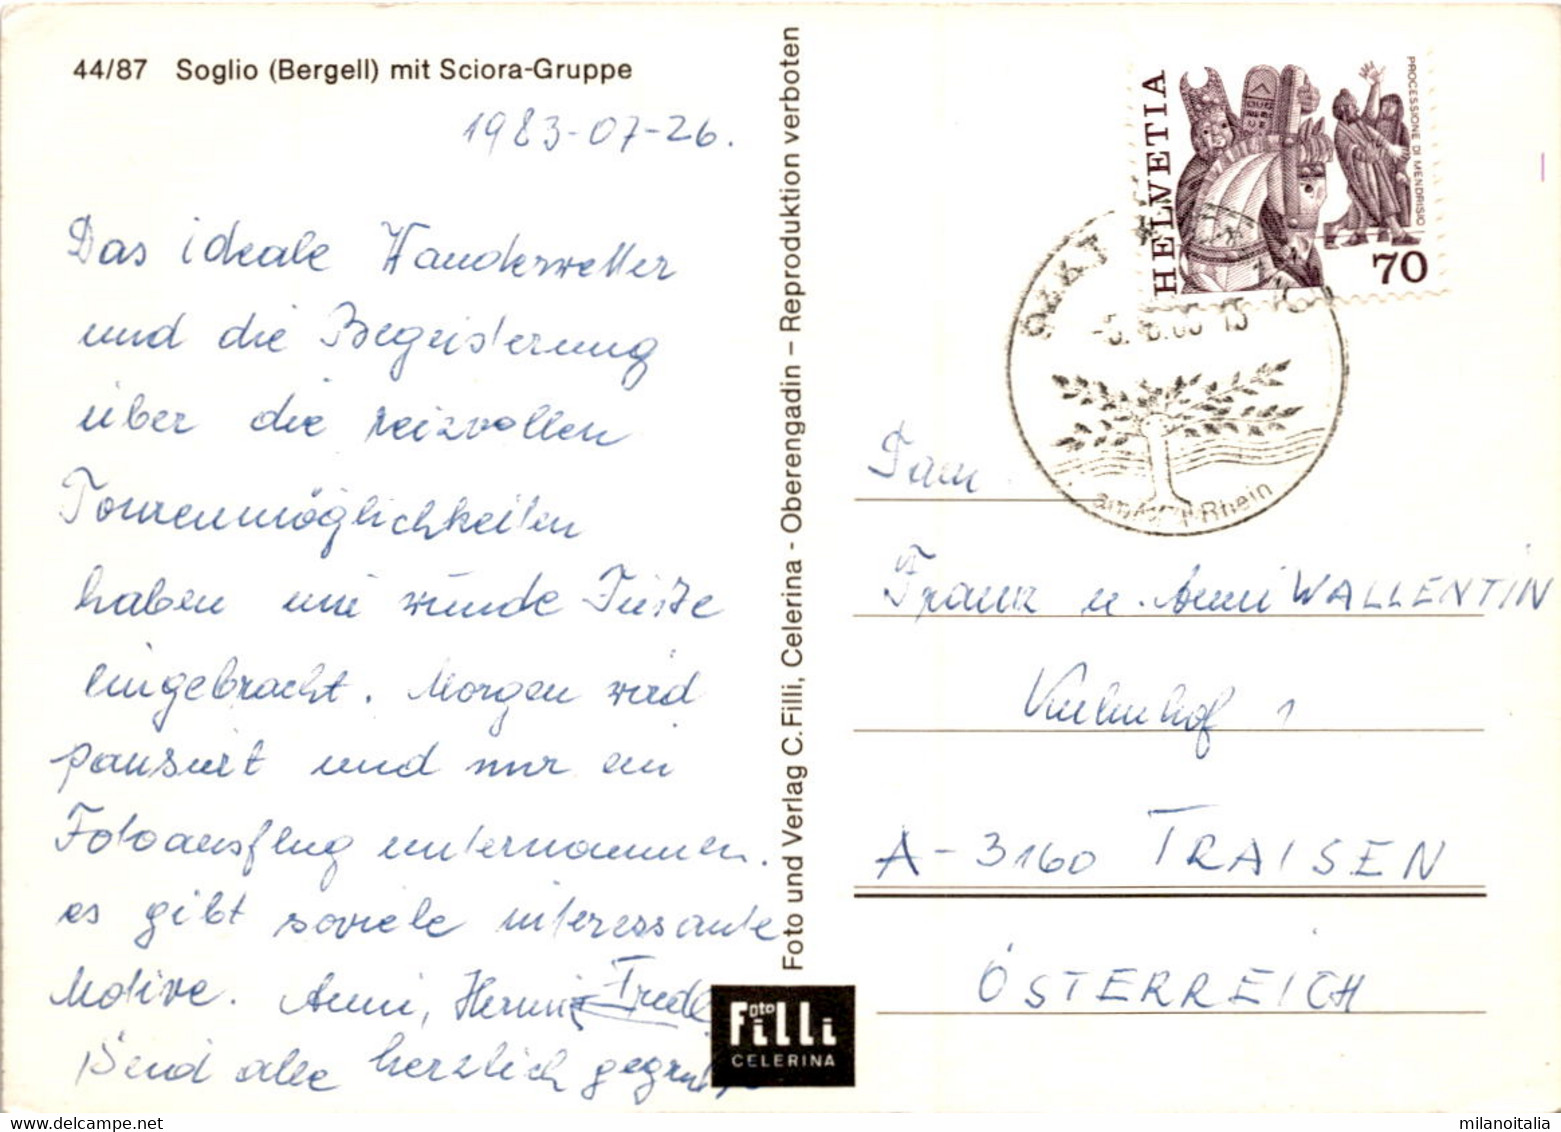 44/87 Soglio (Bergell) mit Sciora-Gruppe
1983-07-26.
Das ideale Wanderwetter
und die Begeisterung
über die reizvollen
Tourenmöglichkeiten
haben uns wunde Füße
eingebracht. Morgen wird
pausiert und nur ein
Fotoausflug unternommen.
es gibt soviele interessante
Motive. Anni, Hermi, Fredl
Seid alle herzlich gegrüßt
Foto und Verlag C. Filli, Celerina - Oberengadin – Reproduktion verboten
Foto
Filli
CELERINA
HELVETIA
PROCESSIONE DI MENDRISIO
70
Rhein
Fam
Franz u. Anni WALLENTIN
Kulmhof 1
A-3160 TRAISEN
ÖSTERREICH
milanoitalia